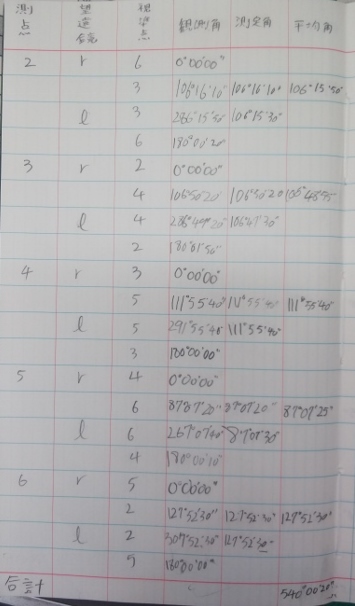 測点 望遠鏡 視準点 観測角 測定角 平均角
2 r 6 0°00'00"
3 106°16'10" 106°16'10" 106°15'50"
l 3 286°15'50" 106°15'30"
6 180°00'20"
3 r 2 0°00'00"
4 106°50'20 106°50'20
l 4 286°49'20" 106°47'30"
2 180°01'50"
4 r 3 0°00'00"
5 111°55'40" 111°55'40" 111°55'40"
l 5 291°55'40" 111°55'40"
3 180°00'00"
5 r 4 0°00'00"
6 87°07'20" 87°07'20" 87°07'25"
l 6 267°07'40" 87°07'30"
4 180°00'10"
6 r 5 0°00'00"
2 127°52'30" 127°52'30" 127°52'30"
l 2 307°52'30" 127°52'30"
5 180°00'00"
合計 540°00'20"